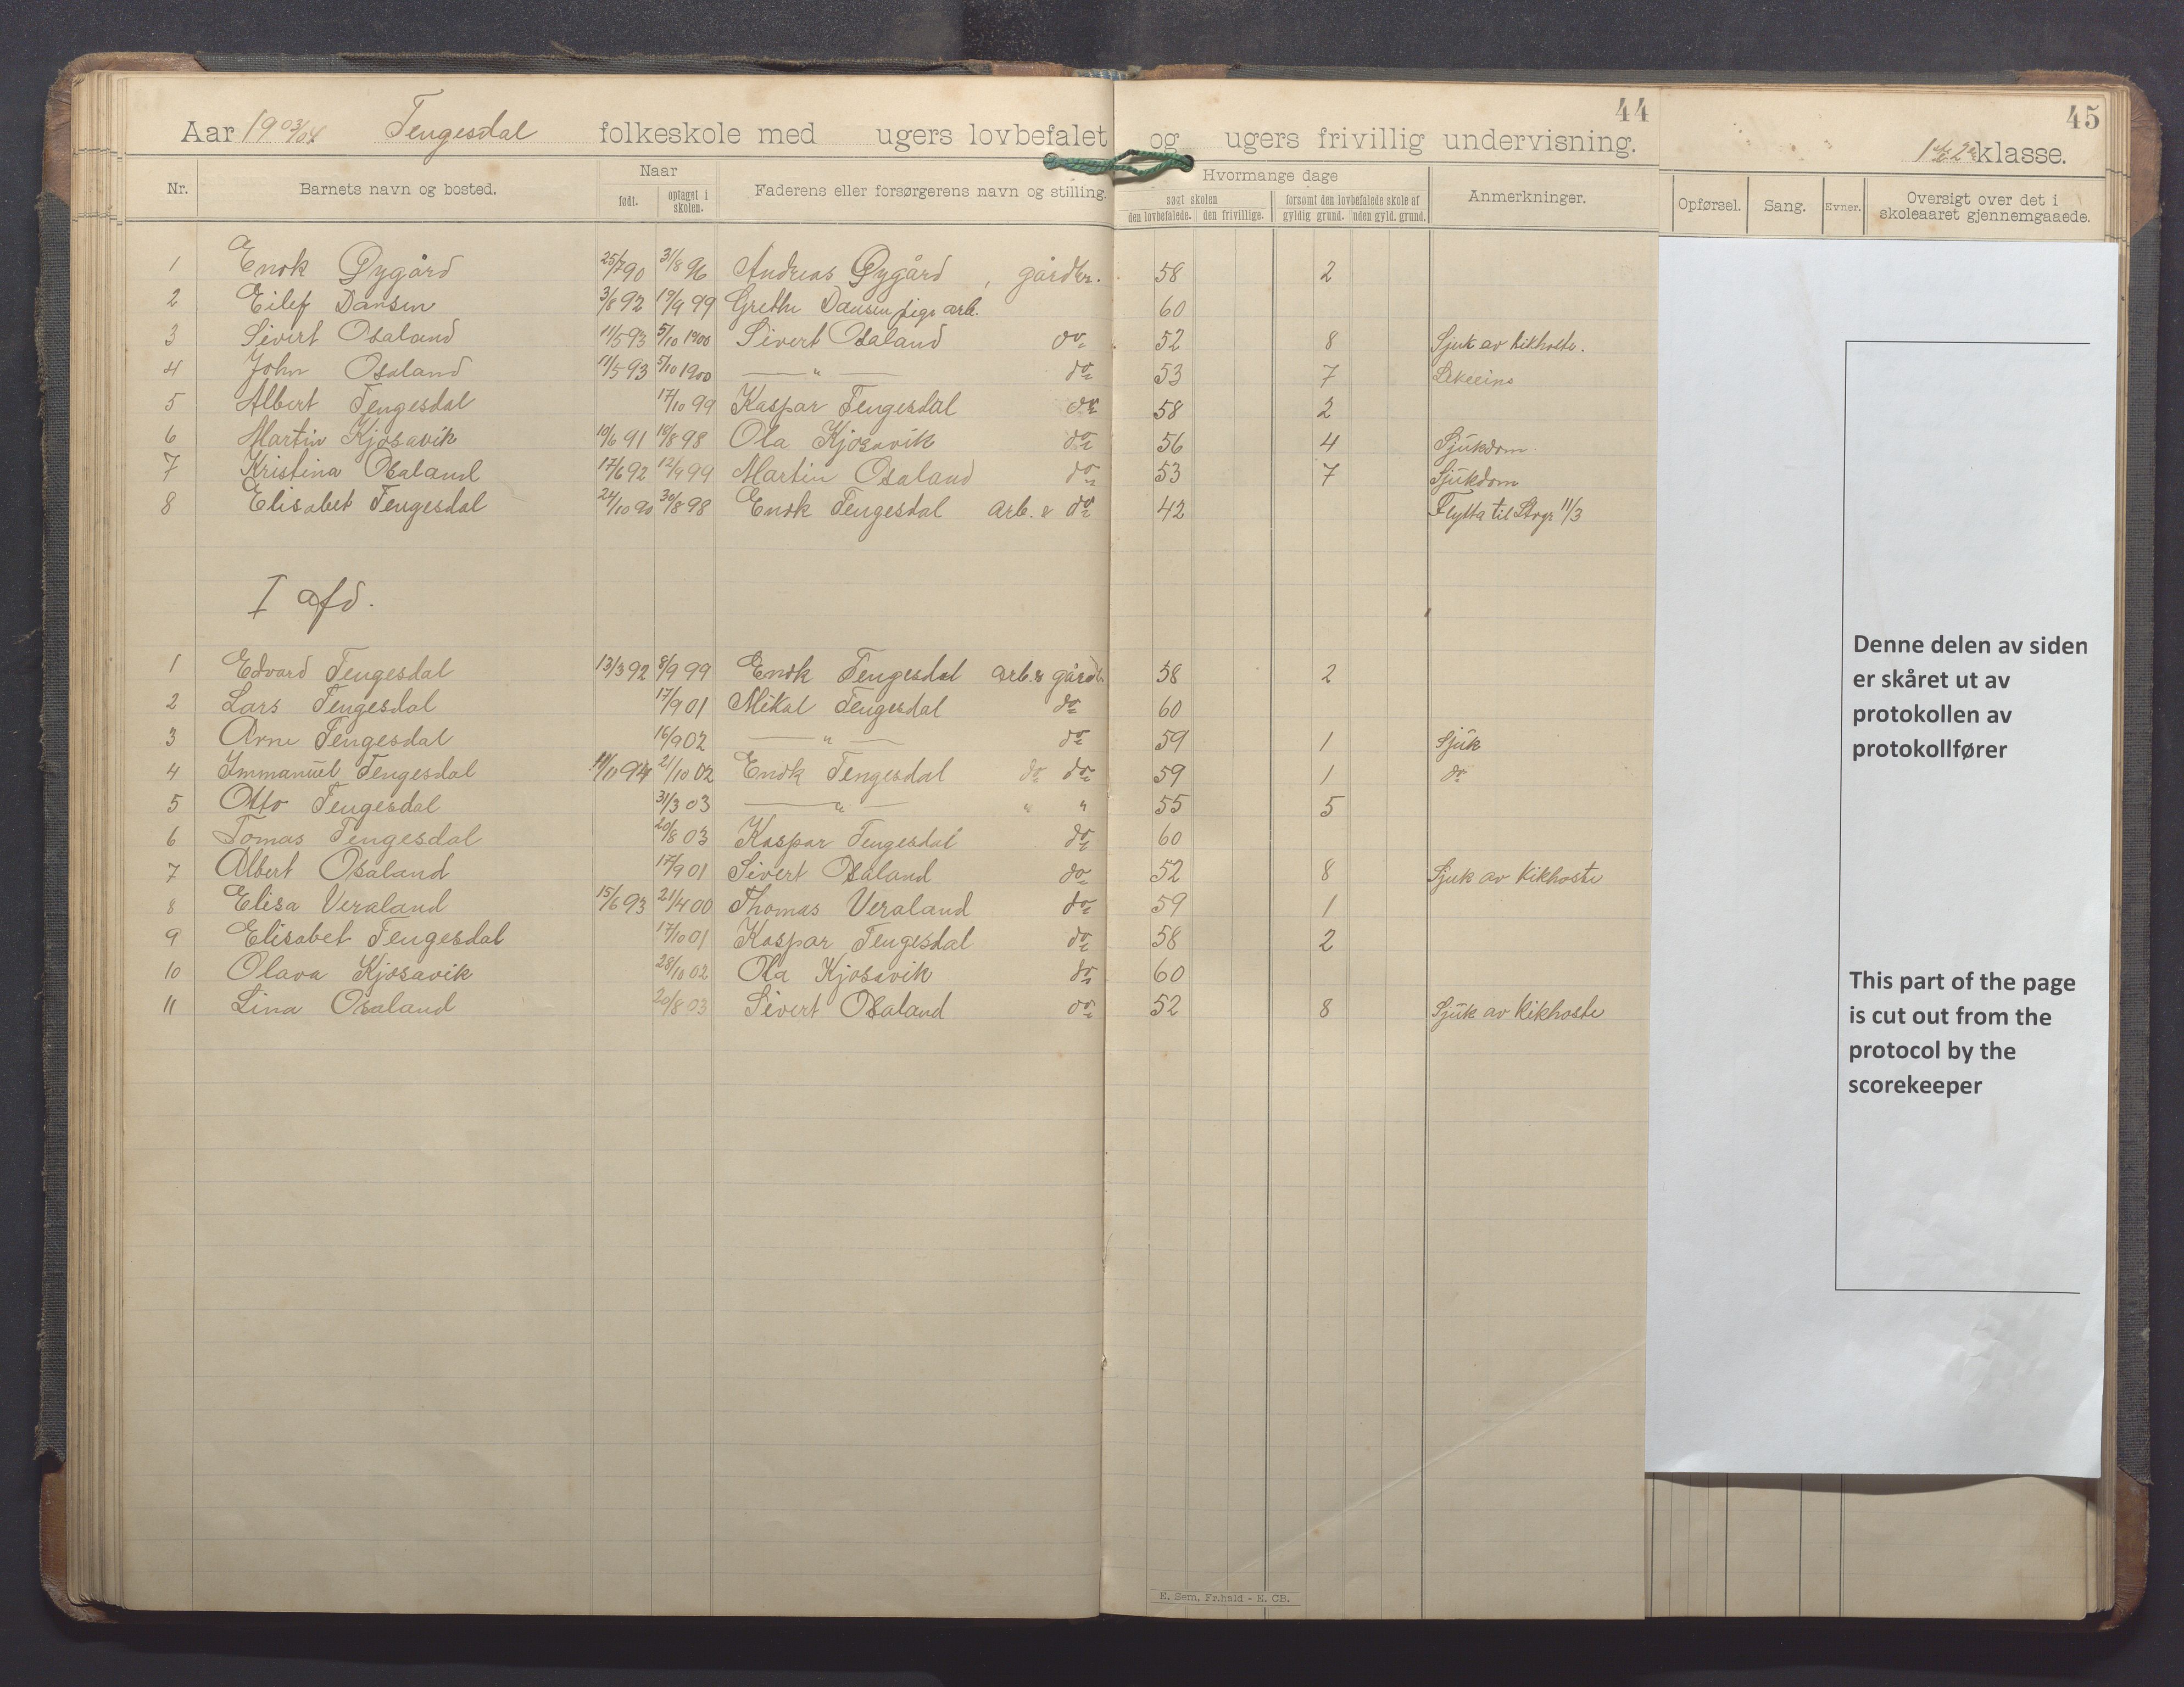 44
45
Aar 1903/04 Tengesdal folkeskole med ugers lovbefalet og ugers frivillig undervisning.
klasse.
Nr. Barnets navn og bosted. Naar født. optaget i skolen. Faderens eller forsørgerens navn og stilling. Hvormange dage søgt skolen den lovbefalede. den frivillige. forsømt den lovbefalede skole af gyldig grund. uden gyld. grund. Anmerkninger. Opførsel. Sang. Evner. Oversigt over det i skoleaaret gjennemgaaede.
1 Enok Øygård 25/7 90 31/8 96 Andreas Øygård, gårdbr. 58 2
2 Eilef Dansen 3/8 92 19/9 99 Grethe Dansen arb. 60
3 Sivert Osaland 11/5 93 5/10 1900 Sivert Osaland do 52 8 Sjuk av kikhoste.
4 John Osaland 11/5 93 5/10 1900 — " — do 53 7
5 Albert Tengesdal 17/10 99 Kaspar Tengesdal do 58 2
6 Martin Kjosavik 10/6 91 10/8 98 Ola Kjosavik do 56 4 Sjukdom.
7 Kristina Osaland 17/6 92 12/9 99 Martin Osaland do 53 7 Sjukdom
8 Elisabet Tengesdal 24/10 90 30/8 98 Enok Tengesdal arb. & do 42 Flytta til 11/3
I afd.
1 Edvard Tengesdal 13/3 92 8/9 99 Enok Tengesdal arb. & gårdb. 58 2
2 Lars Tengesdal 17/9 01 Mikal Tengesdal do 60
3 Arne Tengesdal 16/9 02 — " — do 59 1 Sjuk
4 Immanuel Tengesdal 21/10 02 Enok Tengesdal do do 59 1 do
5 Otto Tengesdal 31/3 03 — " — " " 55 5
6 Tomas Tengesdal 20/8 03 Kaspar Tengesdal do 60
7 Albert Osaland 17/9 01 Sivert Osaland do 52 8 Sjuk av Kikhoste
8 Elisa Veraland 15/6 93 21/4 00 Thomas Veraland do 59 1
9 Elisabet Tengesdal 17/10 01 Kaspar Tengesdal do 58 2
10 Olava Kjosavik 28/10 02 Ola Kjosavik do 60
11 Lina Osaland 20/8 03 Sivert Osaland do 52 8 Sjuk av Kikhoste
Denne delen av siden
er skåret ut av
protokollen av
protokollfører
This part of the page
is cut out from the
protocol by the
scorekeeper
E. Sem, Fr.hald - E. CB.